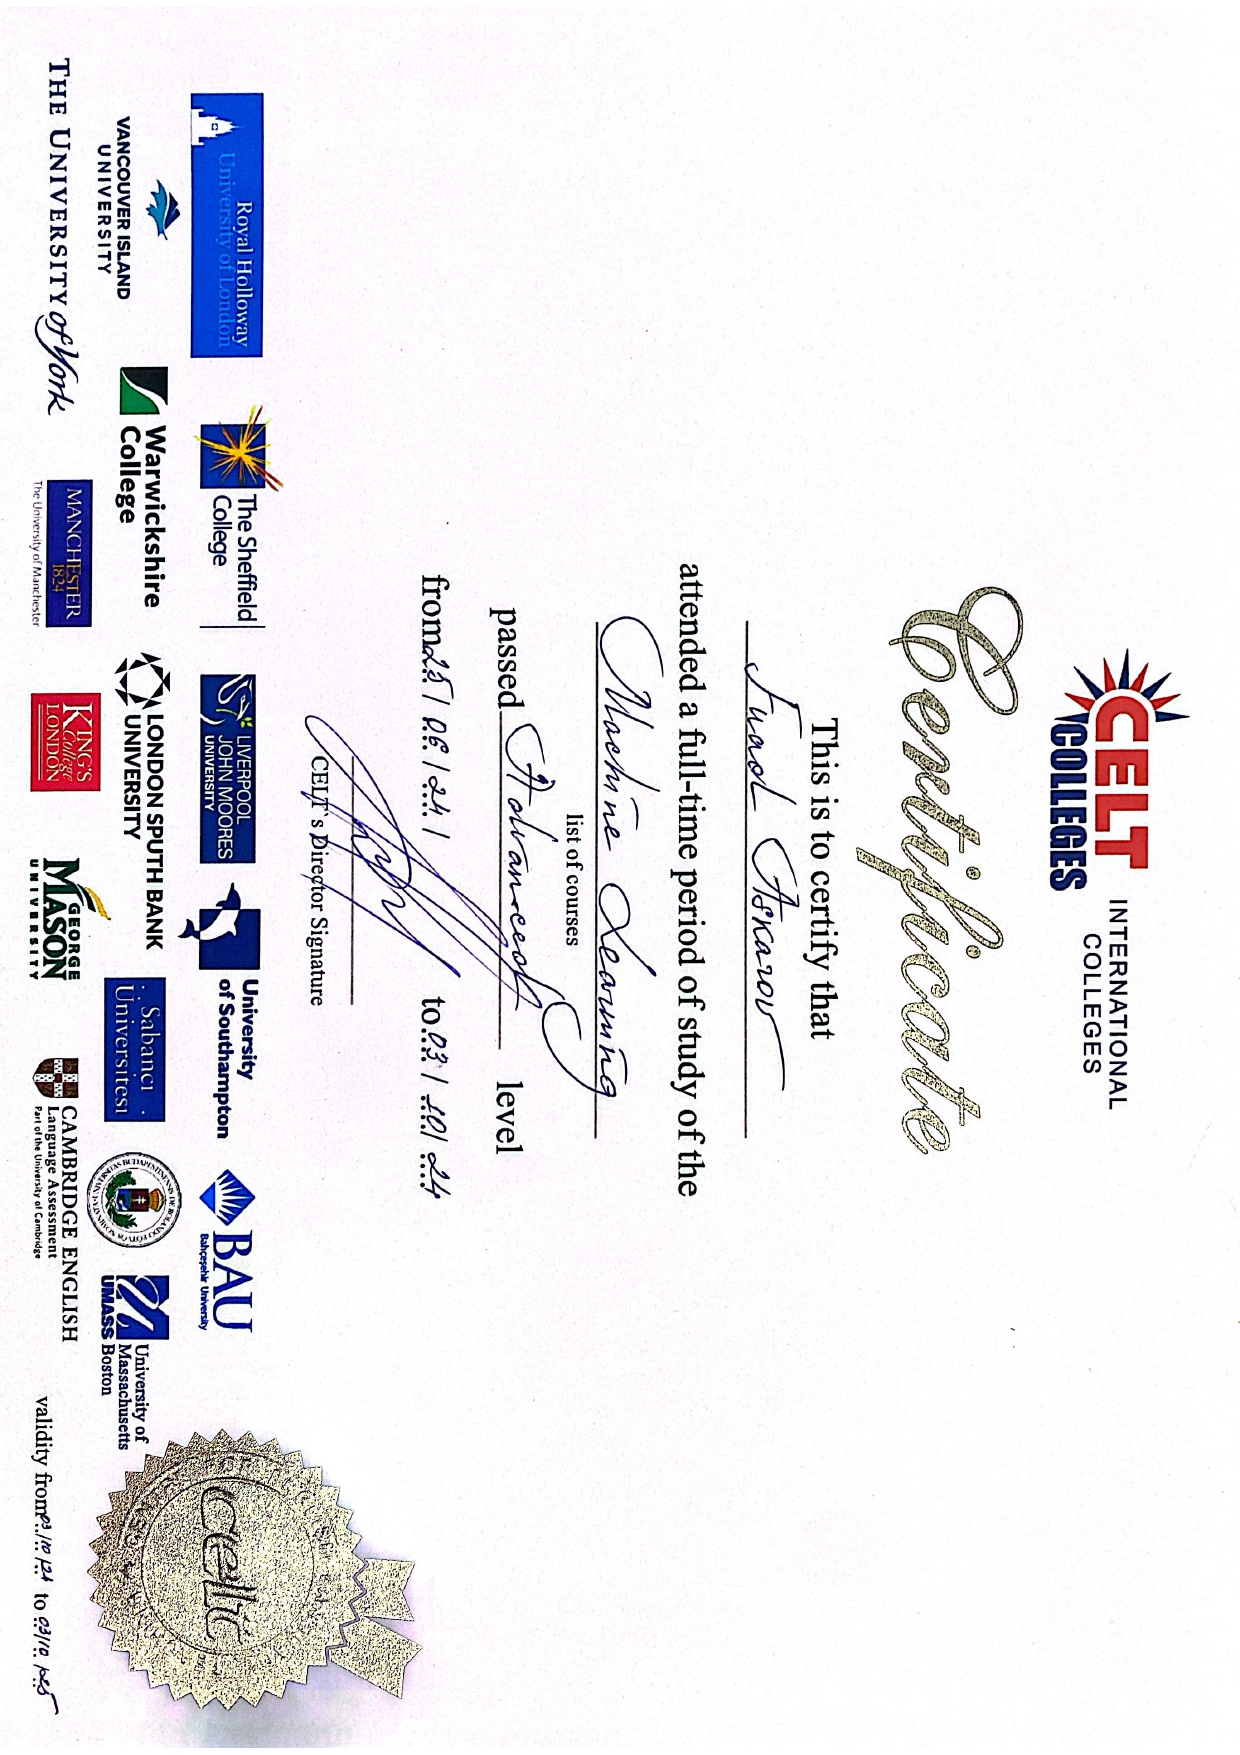 CELT
COLLEGES
INTERNATIONAL
COLLEGES
Certificate
This is to certify that
Fuad Askarov
attended a full-time period of study of the
Machine Learning
list of courses
passed Advanced level
from 25/ 06 / 24 / to 03 / 10/ 24
CELT`s Director Signature
Royal Holloway
University of London
The Sheffield
College
LIVERPOOL
JOHN MOORES
UNIVERSITY
University
of Southampton
BAU
Bahçeşehir University
VANCOUVER ISLAND
UNIVERSITY
Warwickshire
College
LONDON SPUTH BANK
UNIVERSITY
Sabancı
Üniversitesi
UMASS
University of
Massachusetts
Boston
celt
THE UNIVERSITY of York
MANCHESTER
1824
The University of Manchester
KING'S
College
LONDON
GEORGE
MASON
UNIVERSITY
CAMBRIDGE ENGLISH
Language Assessment
Part of the University of Cambridge
validity from 03/10/24 to 03/10/25